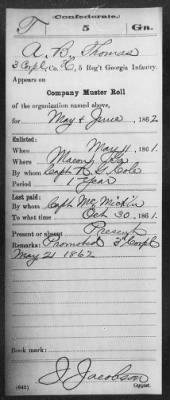 Confederate.
T 5 Ga.
A. B. Thomas
3 Corpl, Co. C, 5 Reg't Georgia Infantry.
Appears on
Company Muster Roll
of the organization named above,
for May & June, 1862
Enlisted:
When May 11, 1861.
Where Macon, Ga.
By whom Capt. R. G. Cole
Period 1 Year
Last paid:
By whom Capt.
To what time Oct 30, 1861.
Present or absent Present
Remarks: Promoted 3" Corpl
May 21 1862
Book mark:
(642) J. Jacobson
Copyist.